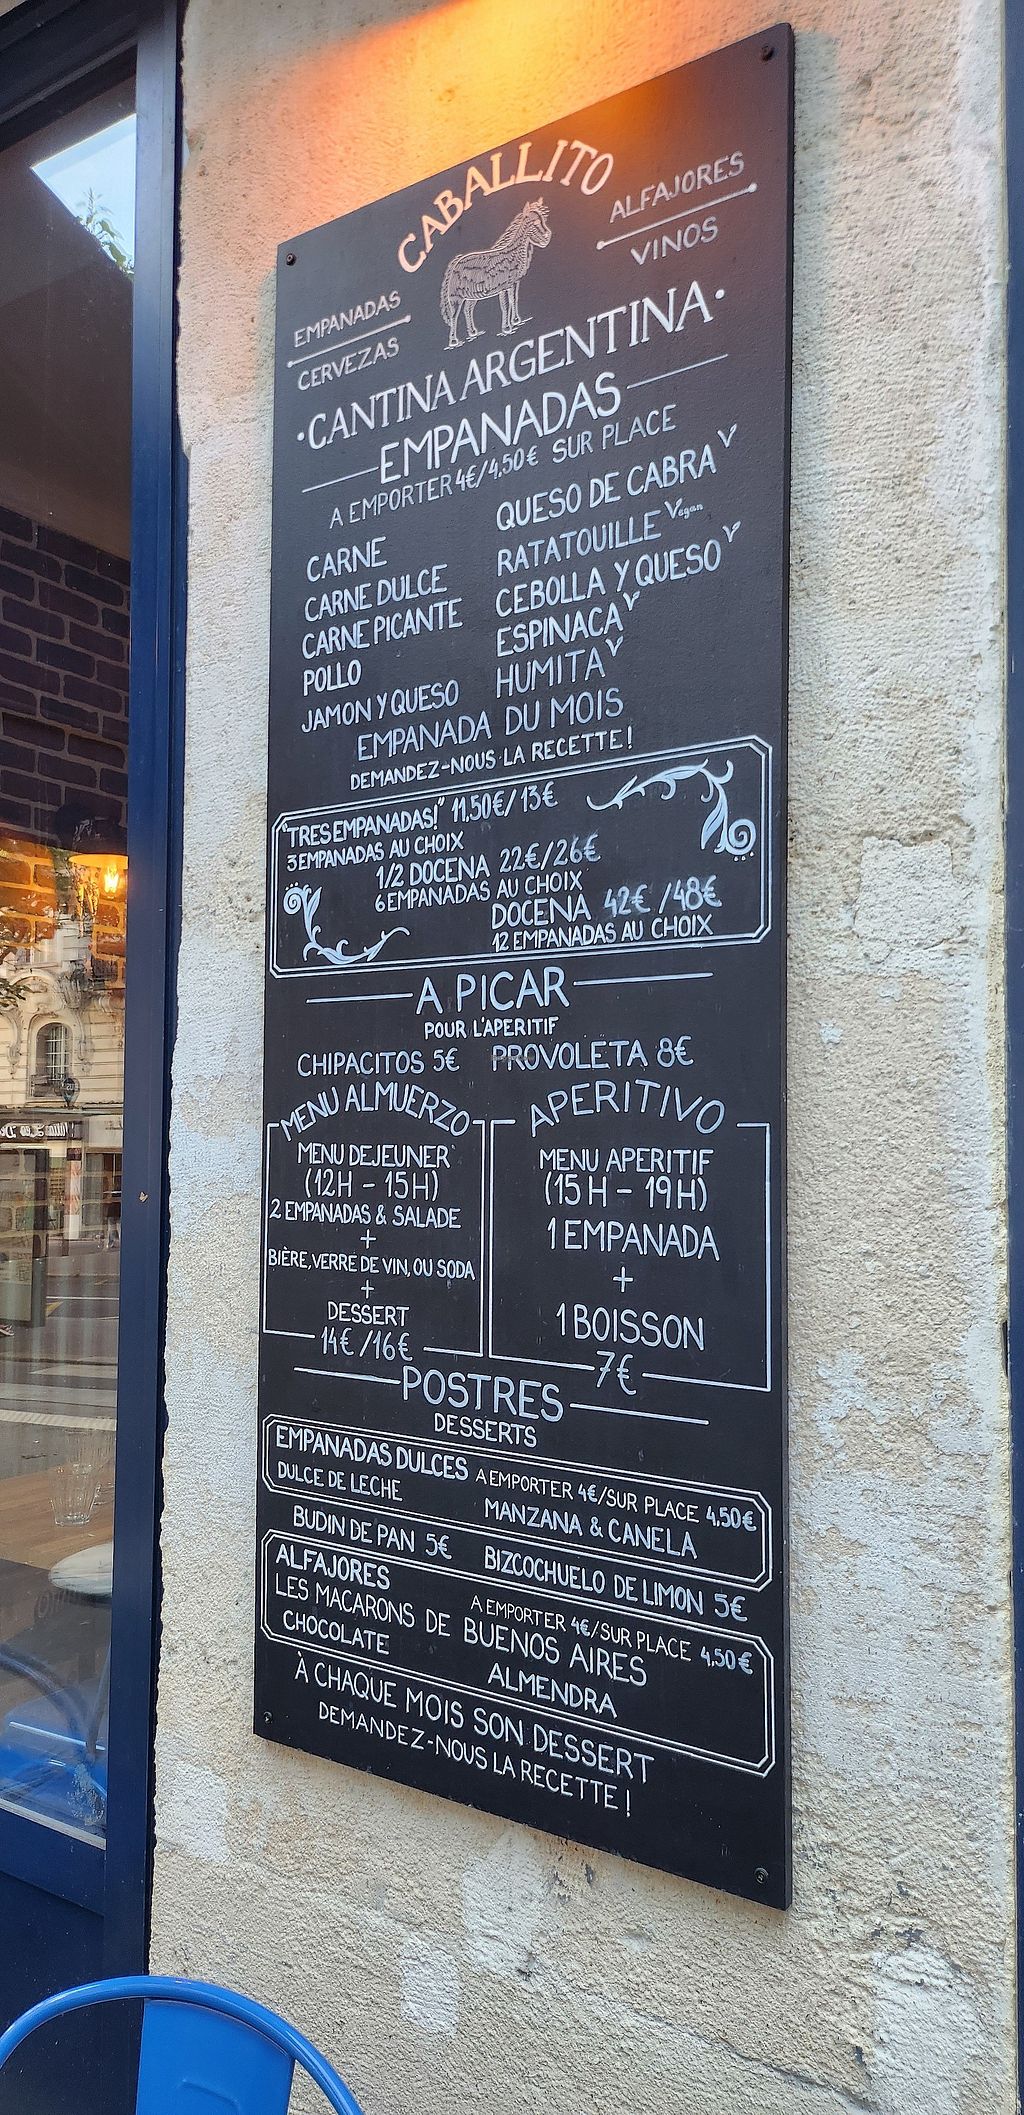 CABALLITO
EMPANADAS
CERVEZAS
ALFAJORES
VINOS
·CANTINA ARGENTINA·
EMPANADAS
A EMPORTER 4€/4,50€ SUR PLACE
CARNE
CARNE DULCE
CARNE PICANTE
POLLO
JAMON Y QUESO
QUESO DE CABRA V
RATATOUILLE Vegan
CEBOLLA Y QUESO V
ESPINACA V
HUMITA V
EMPANADA DU MOIS
DEMANDEZ-NOUS LA RECETTE!
"TRES EMPANADAS!" 11,50€/13€
3 EMPANADAS AU CHOIX
1/2 DOCENA 22€/26€
6 EMPANADAS AU CHOIX
DOCENA 42€/48€
12 EMPANADAS AU CHOIX
A PICAR
POUR L'APERITIF
CHIPACITOS 5€ PROVOLETA 8€
MENU ALMUERZO
MENU DEJEUNER
(12H - 15H)
2 EMPANADAS & SALADE
+
BIÈRE, VERRE DE VIN, OU SODA
+
DESSERT
14€/16€
APERITIVO
MENU APERITIF
(15H - 19H)
1 EMPANADA
+
1 BOISSON
7€
POSTRES
DESSERTS
EMPANADAS DULCES A EMPORTER 4€/SUR PLACE 4,50€
DULCE DE LECHE MANZANA & CANELA
BUDIN DE PAN 5€ BIZCOCHUELO DE LIMON 5€
ALFAJORES A EMPORTER 4€/SUR PLACE 4,50€
LES MACARONS DE BUENOS AIRES
CHOCOLATE ALMENDRA
À CHAQUE MOIS SON DESSERT
DEMANDEZ-NOUS LA RECETTE!